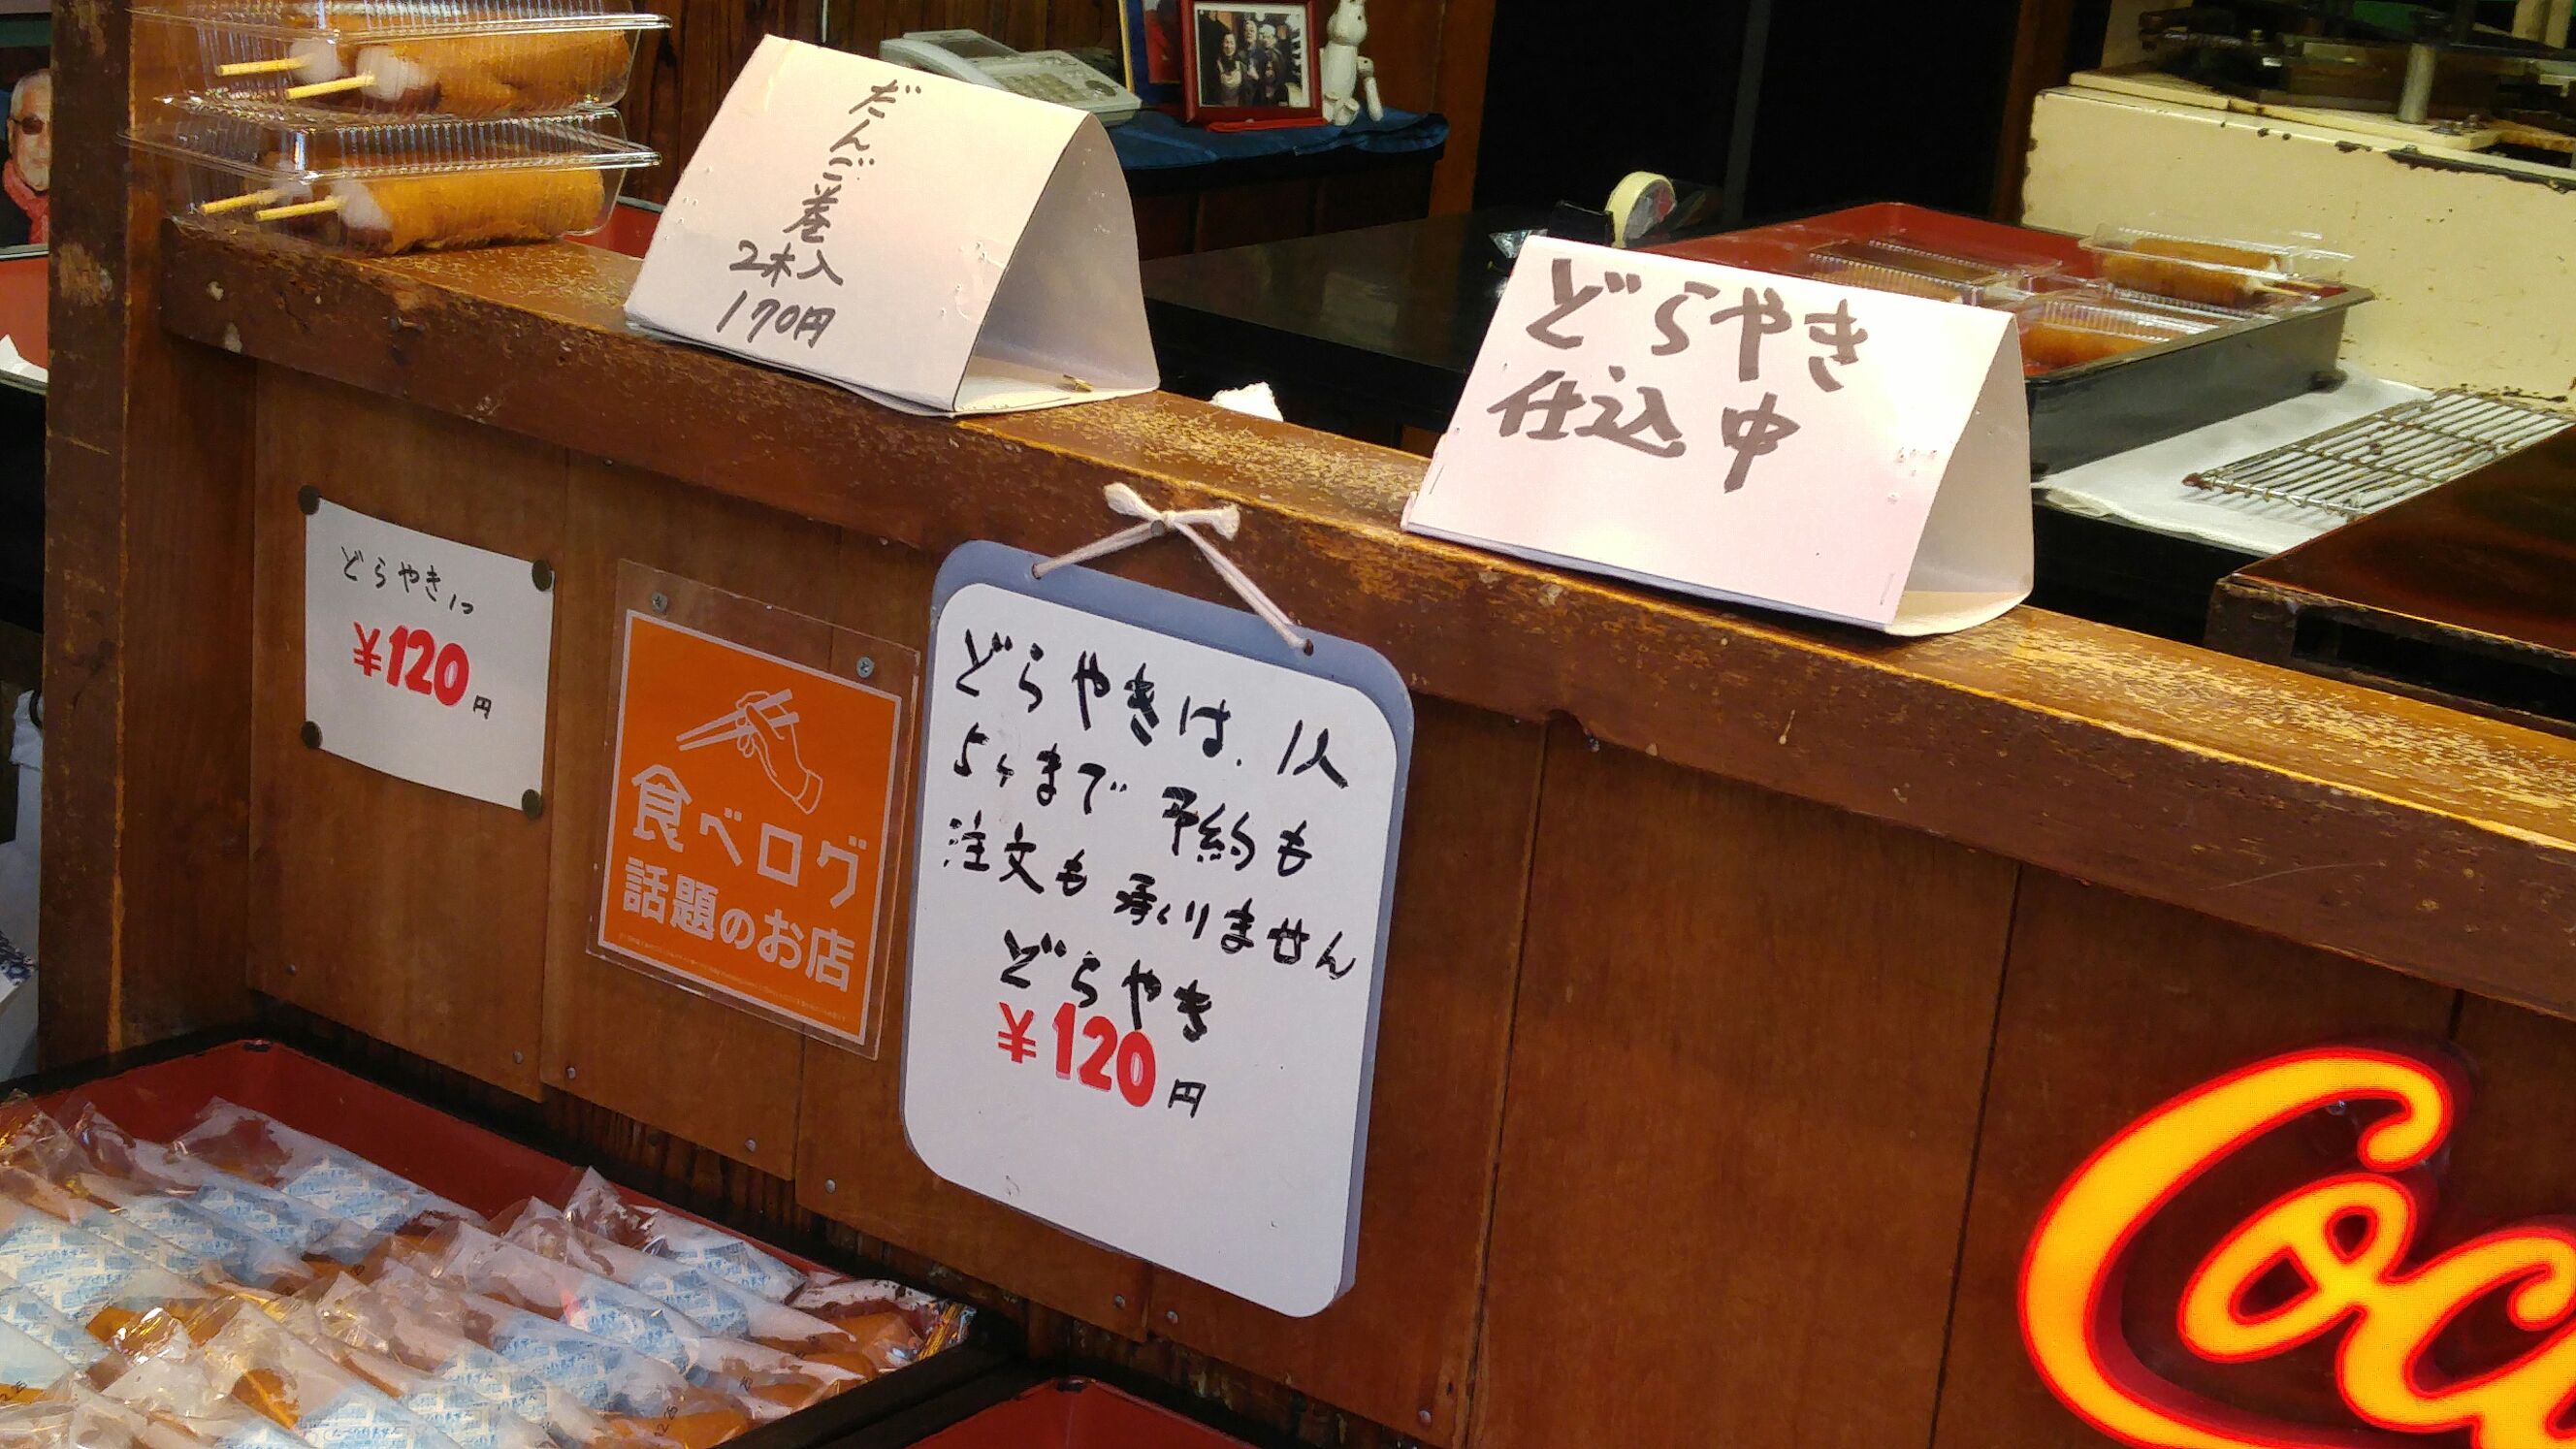 だんご巻
2本入
170円
どらやき
仕込中
どらやき1つ
¥120円
食べログ
話題のお店
どらやきは、1人
5ヶまで 予約も
注文も 承くりません
どらやき
¥120円
Coc